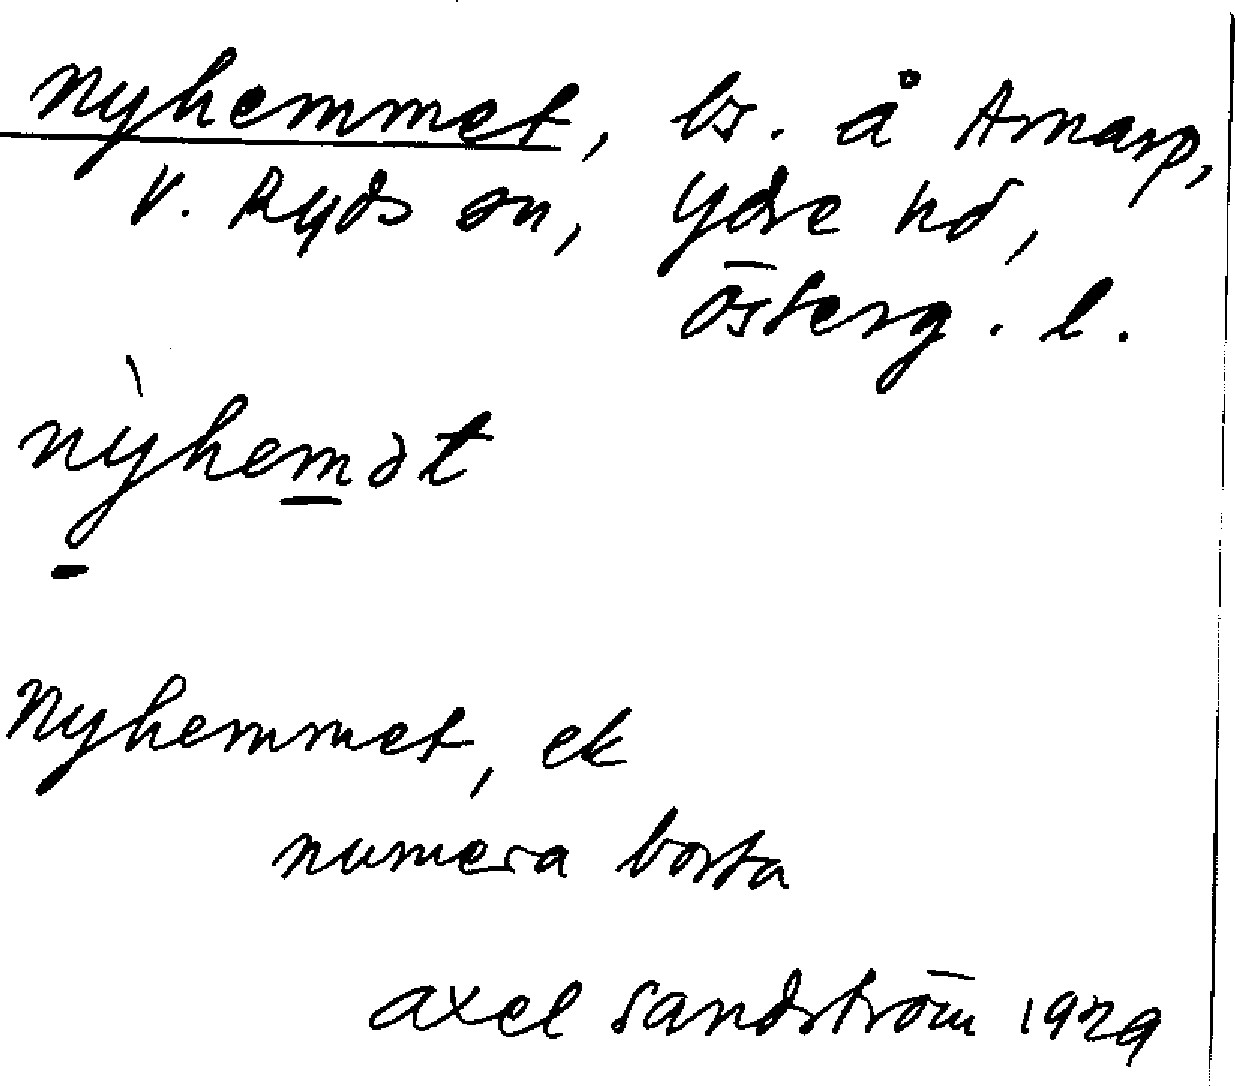 Nyhemmet, ls. å Arnarp,
V. Ryds sn, Ydre hd,
Österg. l.
nỳhemət
Nyhemmet, ek
numera borta
Axel Sandström 1929